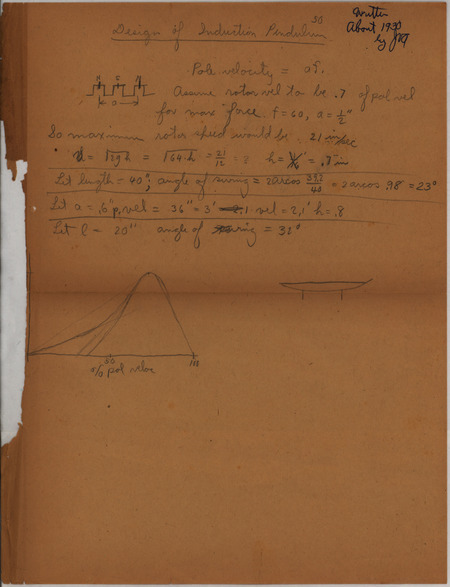 30
Written
About 1930
by
Design of Induction Pendulum
Pole velocity = af.
a
Assume rotor vel to be .7 of pol vel
for max force f = 60, a = ½"
So maximum rotor speed would be 21 in/sec
= √2gh = √64·h = 21/12 = 2 h = .7 in
Let length = 40", angle of swing = 2 arcos 39.2/40 = 2 arcos .98 = 23°
Let a = .6" p. vel = 36" = 3' vel = 2.1' h = .8
Let l = 20" angle of swing = 32°
50
100
% pol veloc